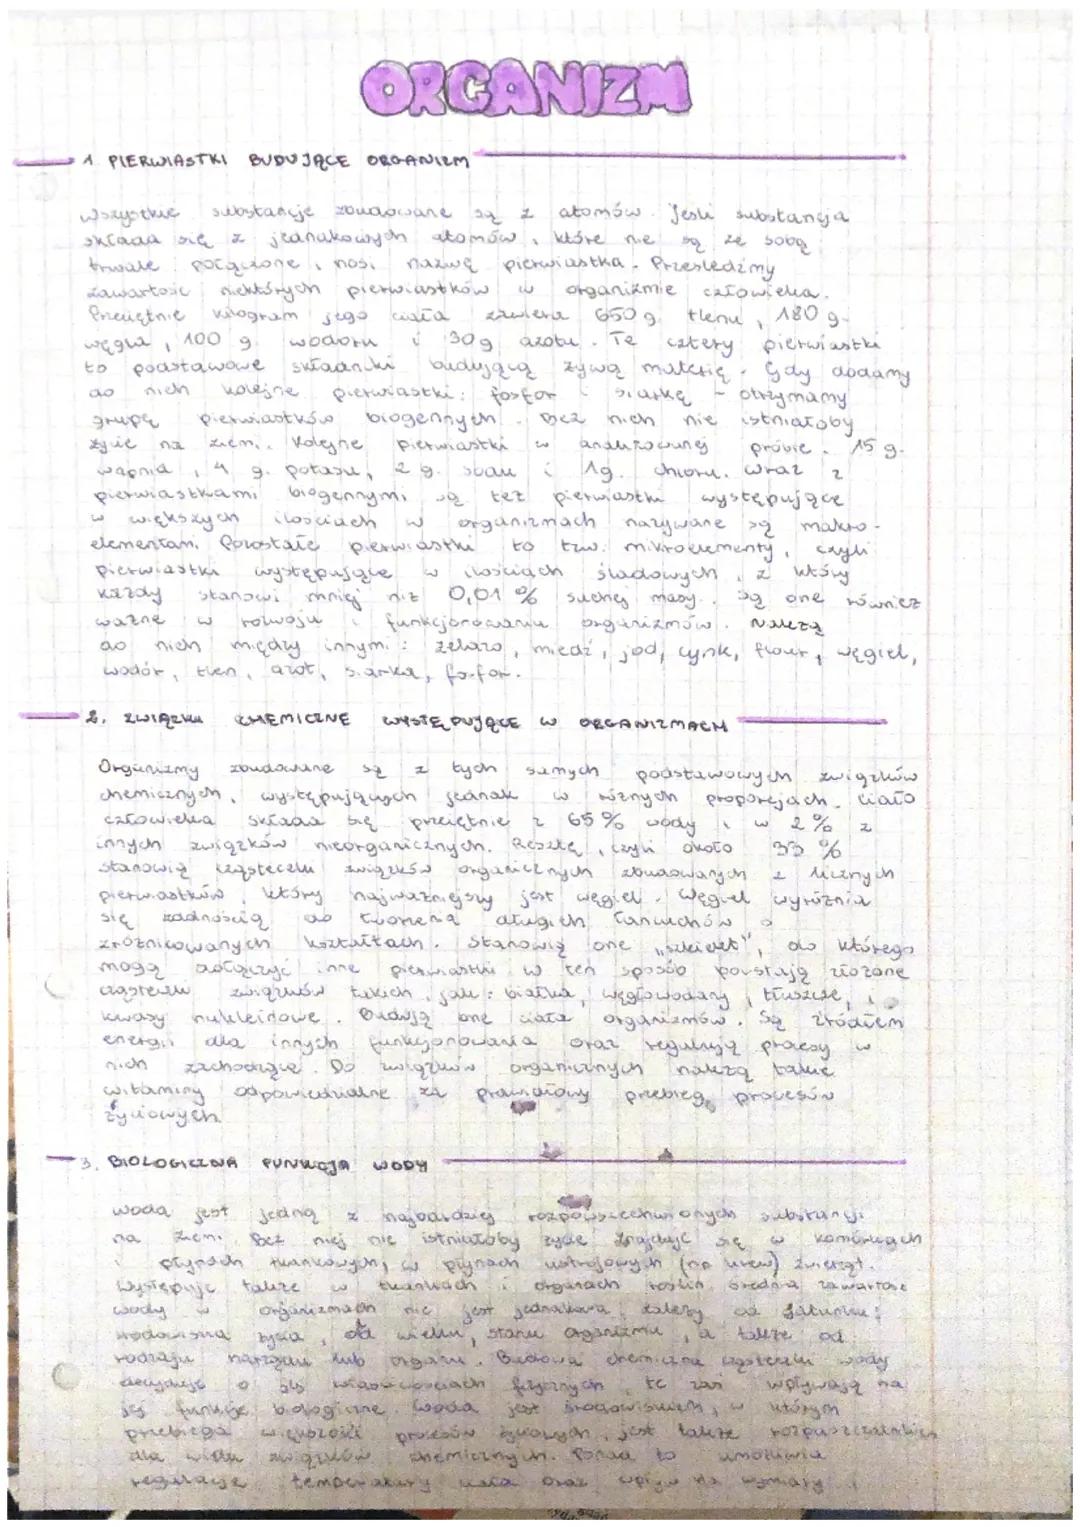 ORGANIZM
1. PIERWIASTKI BUDUJĄCE ORGANIZM
Wszystkie substancje zbudowane są z atomów. Jeśli substancja
składa się z jednakowych atomów, które nie są ze sobą
trwale połączone, nosi nazwę pierwiastka. Prześledźmy
zawartość niektórych pierwiastków w organiźmie człowieka.
Przeciętnie kilogram jego ciała zawiera 650 g. tlenu, 180 g.
węgla, 100 g. wodoru i 30g azotu. Te cztery pierwiastki
to podstawowe składniki budującą żywą materię. Gdy dodamy
do nich kolejne pierwiastki: fosfor i siarkę - otrzymamy
grupę pierwiastków biogennych. Bez nich nie istniałoby
życie na ziemi. Kolejne pierwiastki w analizowanej próbie. 15 g.
wapnia, 4 g. potasu, 2 g. sodu i 1g. chloru. Wraz z
pierwiastkami biogennymi są też pierwiastki występujące
w większych ilościach w organizmach nazywane są makro-
elementami. Pozostałe pierwiastki to tzw. mikroelementy, czyli
pierwiastki występujące w ilościach śladowych, z który
każdy stanowi mniej niż 0,01 % suchej masy. Są one również
ważne w rozwoju i funkcjonowaniu organizmów. Należą
do nich między innymi: żelazo, miedź, jod, cynk, fluor, węgiel,
wodór, tlen, azot, siarka, fosfor.
2. ZWIĄZKI CHEMICZNE WYSTĘPUJĄCE W ORGANIZMACH
Organizmy zbudowane są z tych samych podstawowych związków
chemicznych, występujących jednak w różnych proporcjach. Ciało
człowieka składa się przeciętnie z 65% wody i w 2% z
innych związków nieorganicznych. Resztę, czyli około 33 %
stanowią cząsteczki związków organicznych zbudowanych z licznych
pierwiastków, który najważniejszy jest węgiel. Węgiel wyróżnia
się zadnością do tworzenia długich łańcuchów o
zróżnicowanych kształtach. Stanowią one „szkielet", do którego
mogą dołączyć inne pierwiastki w ten sposób powstają złożone
cząsteczki związków takich, jak: białka, węglowodany, tłuszcze, i
kwasy nukleinowe. Budują one ciała organizmów. Są źródłem
energii dla innych funkcjonowania oraz regulują procesy w
nich zachodzące. Do związków organicznych należą także
witaminy odpowiedzialne za prawidłowy przebieg procesów
życiowych
3. BIOLOGICZNA FUNKCJA WODY
Woda jest jedną z najbardziej rozpowszechnionych substancji
na ziemi. Bez niej nie istniałoby życie znajduje się w komórkach
i płynach tkankowych, w płynach ustrojowych (np krew) zwierząt.
Występuje także w tkankach i organach roślin. Średnia zawartość
wody w organizmach nie jest jednakowa, zależy od gatunku,
środowiska życia, od wieku, stanu organizmu, a także od
rodzaju narządu lub organu. Budowa chemiczna cząsteczki wody
decyduje o jej właściwościach fizycznych, te zaś wpływają na
jej funkcje biologiczne. Woda jest środowiskiem, w którym
przebiega większość procesów życiowych, jest także rozpuszczalnikiem
dla wielu związków chemicznych. Ponad to umożliwia
regulację temperatury ciała oraz wpływa na wymiary